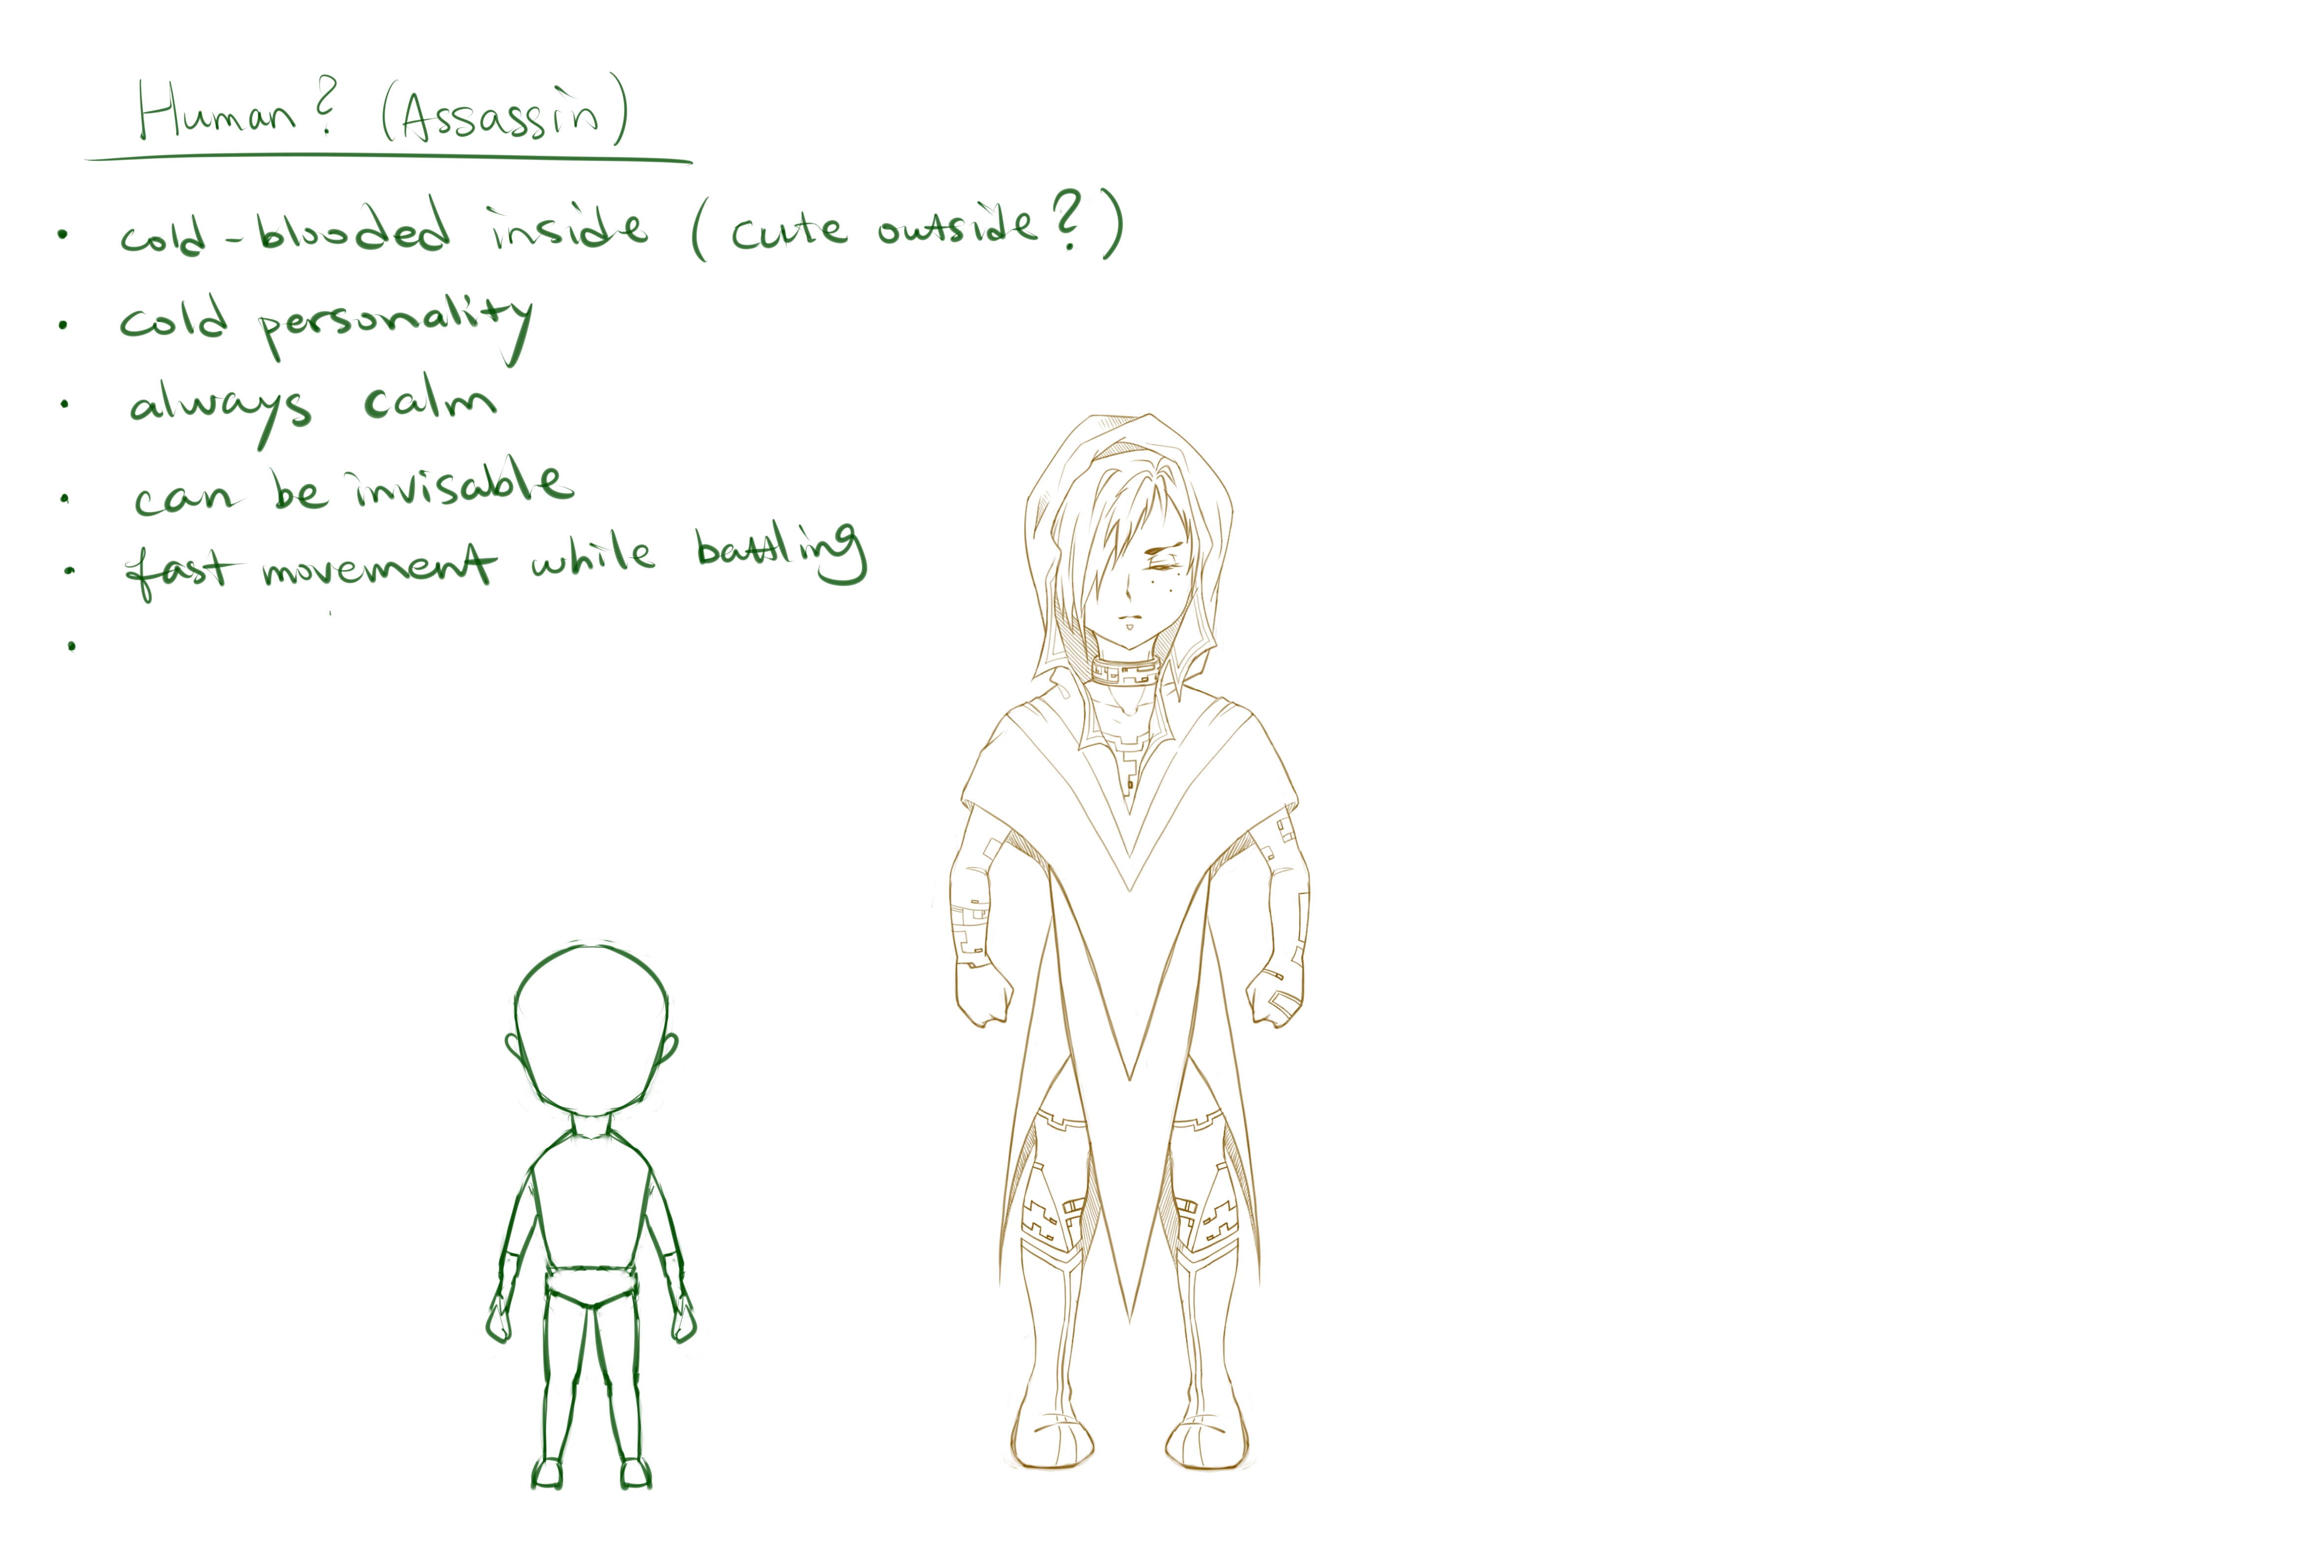 Human? (Assassin)
• cold-blooded inside (cute outside?)
• cold personality
• always calm
• can be invisable
• fast movement while battling
•